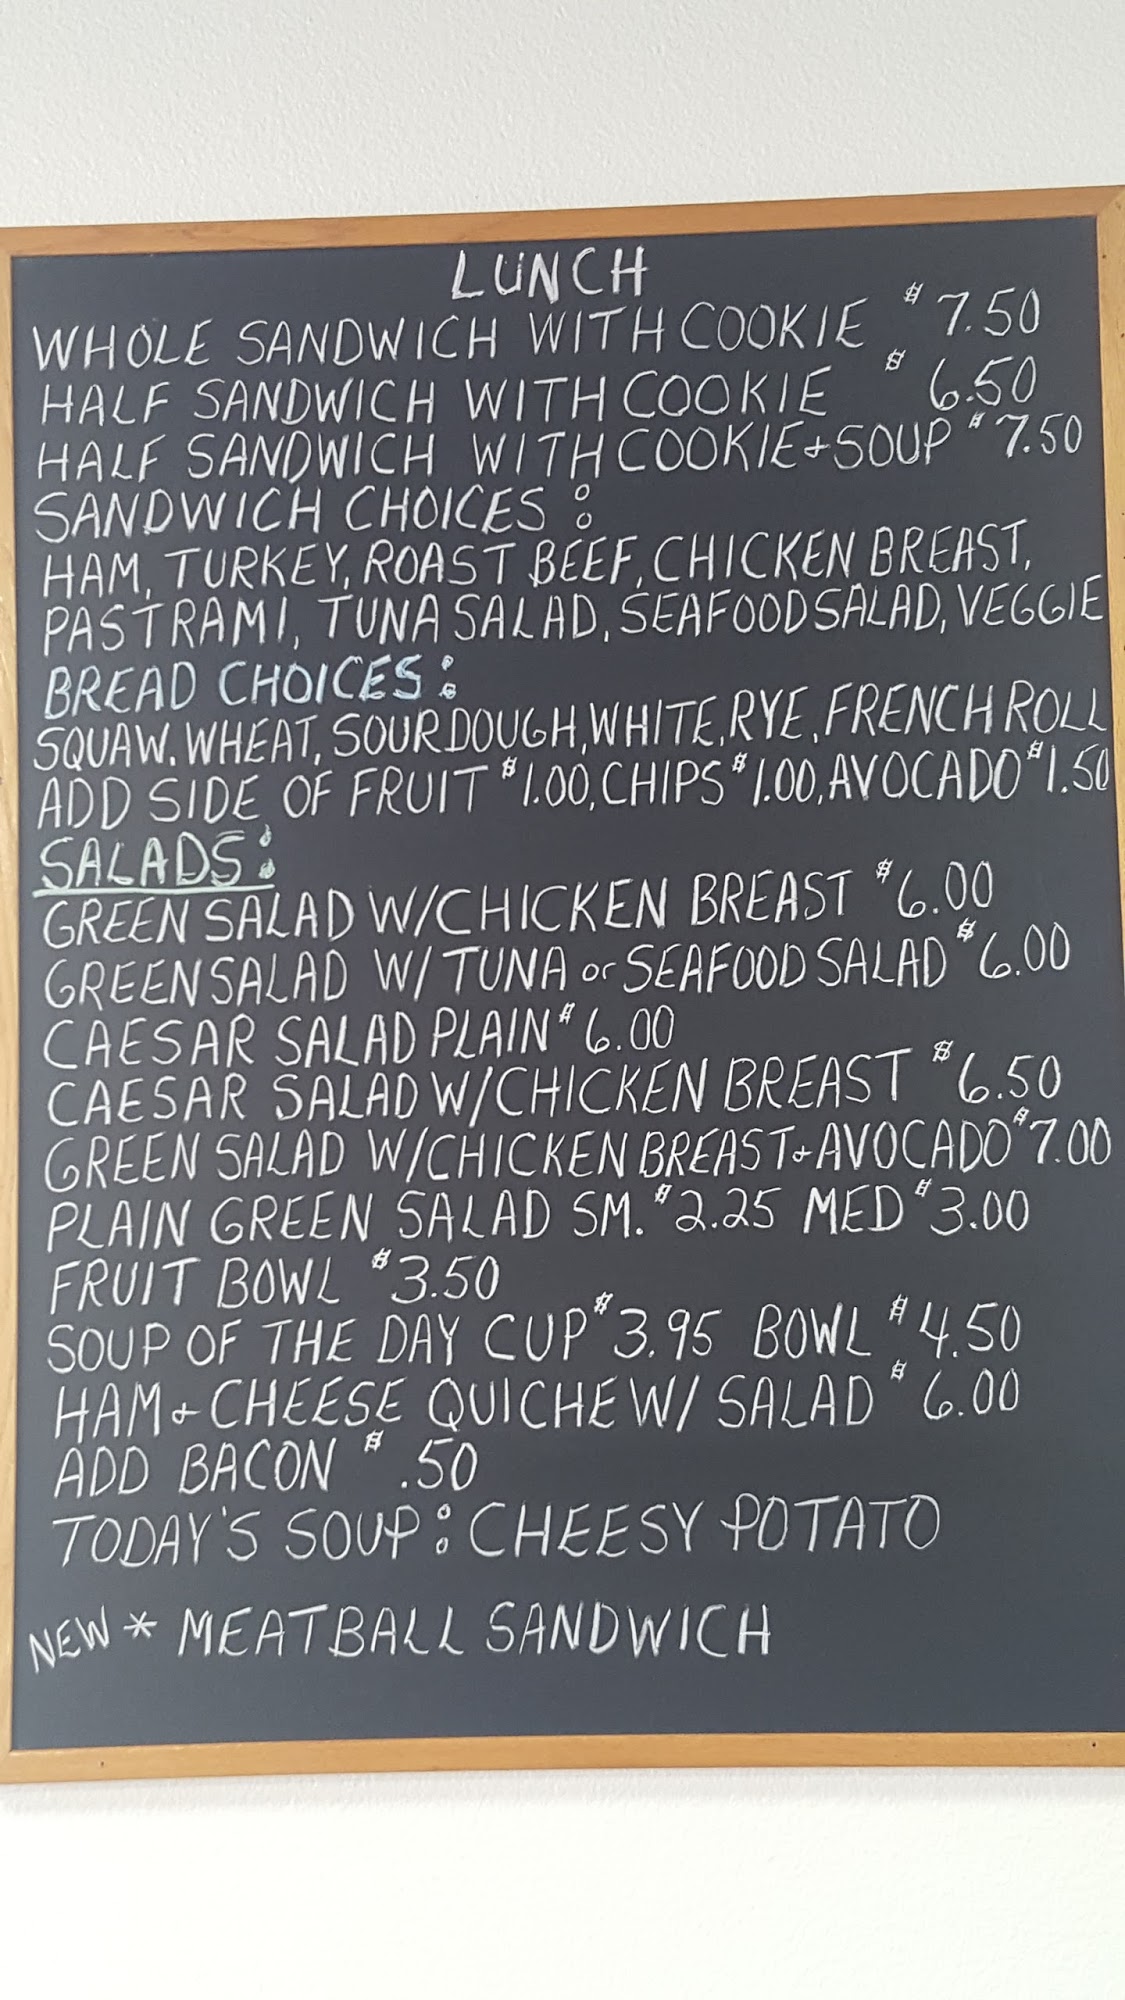 LUNCH
WHOLE SANDWICH WITH COOKIE $7.50
HALF SANDWICH WITH COOKIE $6.50
HALF SANDWICH WITH COOKIE + SOUP $7.50
SANDWICH CHOICES:
HAM, TURKEY, ROAST BEEF, CHICKEN BREAST,
PASTRAMI, TUNA SALAD, SEAFOOD SALAD, VEGGIE
BREAD CHOICES:
SQUAW. WHEAT, SOURDOUGH, WHITE, RYE, FRENCH ROLL
ADD SIDE OF FRUIT $1.00, CHIPS $1.00, AVOCADO $1.50
SALADS:
GREEN SALAD W/CHICKEN BREAST $6.00
GREEN SALAD W/ TUNA or SEAFOOD SALAD $6.00
CAESAR SALAD PLAIN $6.00
CAESAR SALAD W/CHICKEN BREAST $6.50
GREEN SALAD W/CHICKEN BREAST + AVOCADO $7.00
PLAIN GREEN SALAD SM. $2.25 MED $3.00
FRUIT BOWL $3.50
SOUP OF THE DAY CUP $3.95 BOWL $4.50
HAM + CHEESE QUICHE W/ SALAD $6.00
ADD BACON $.50
TODAY'S SOUP: CHEESY POTATO
NEW * MEATBALL SANDWICH